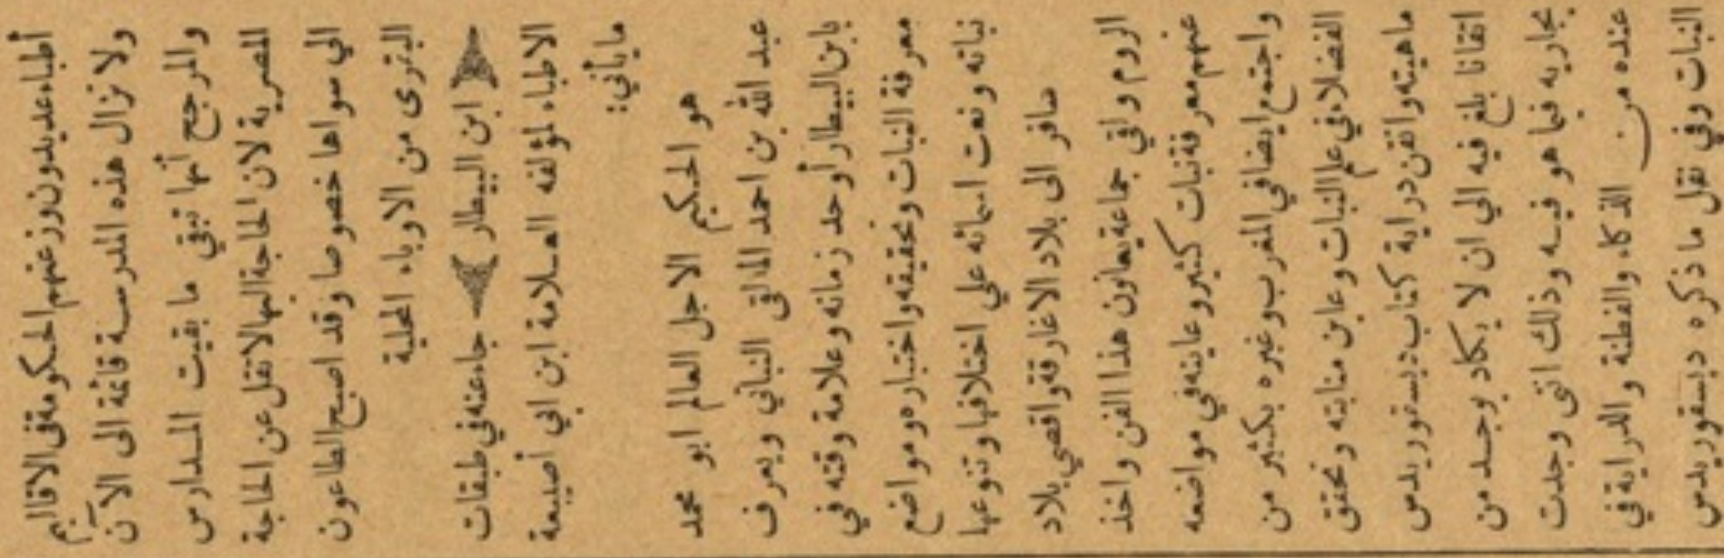 أطباء عديدون وزعتهم الحكومة في الاقاليم
ولا تزال هذه المدرسة قائمة الى الآن
والمرجح أنها تبقى ما بقيت المدارس
المصرية لان الحاجة اليها لا تقل عن الحاجة
الي سواها خصوصا وقد اصبح الطاعون
البقري من الاوباء المحلية
﴿ ابن البيطار ﴾ جاء عنه في طبقات
الاطباء لمؤلفه العلامة ابن ابي أصيبعة
ما يأتي:
هو الحكيم الاجل العالم ابو محمد
عبد الله بن احمد المالقي النباتي ويعرف
بابن البيطار أوحد زمانه وعلامة وقته في
معرفة النبات وتحقيقه واختباره ومواضع
نباته ونعت اسمائه علي اختلافها وتنوعها
سافر الى بلاد الاغارقة واقصي بلاد
الروم ولقي جماعة يعانون هذا الفن واخذ
عنهم معرفة نبات كثير وعاينه في مواضعه
واجتمع ايضا في المغرب وغيره بكثير من
الفضلاء في علم النبات وعاين منابته وتحقق
ماهيته واتقن دراية كتاب ديسقوريدس
اتقانا بلغ فيه الي ان لا يكاد يوجد من
يجاريه فيما هو فيه وذلك انى وجدت
عنده من الذكاء والفطنة والدراية في
النبات وفي نقل ما ذكره ديسقوريدس